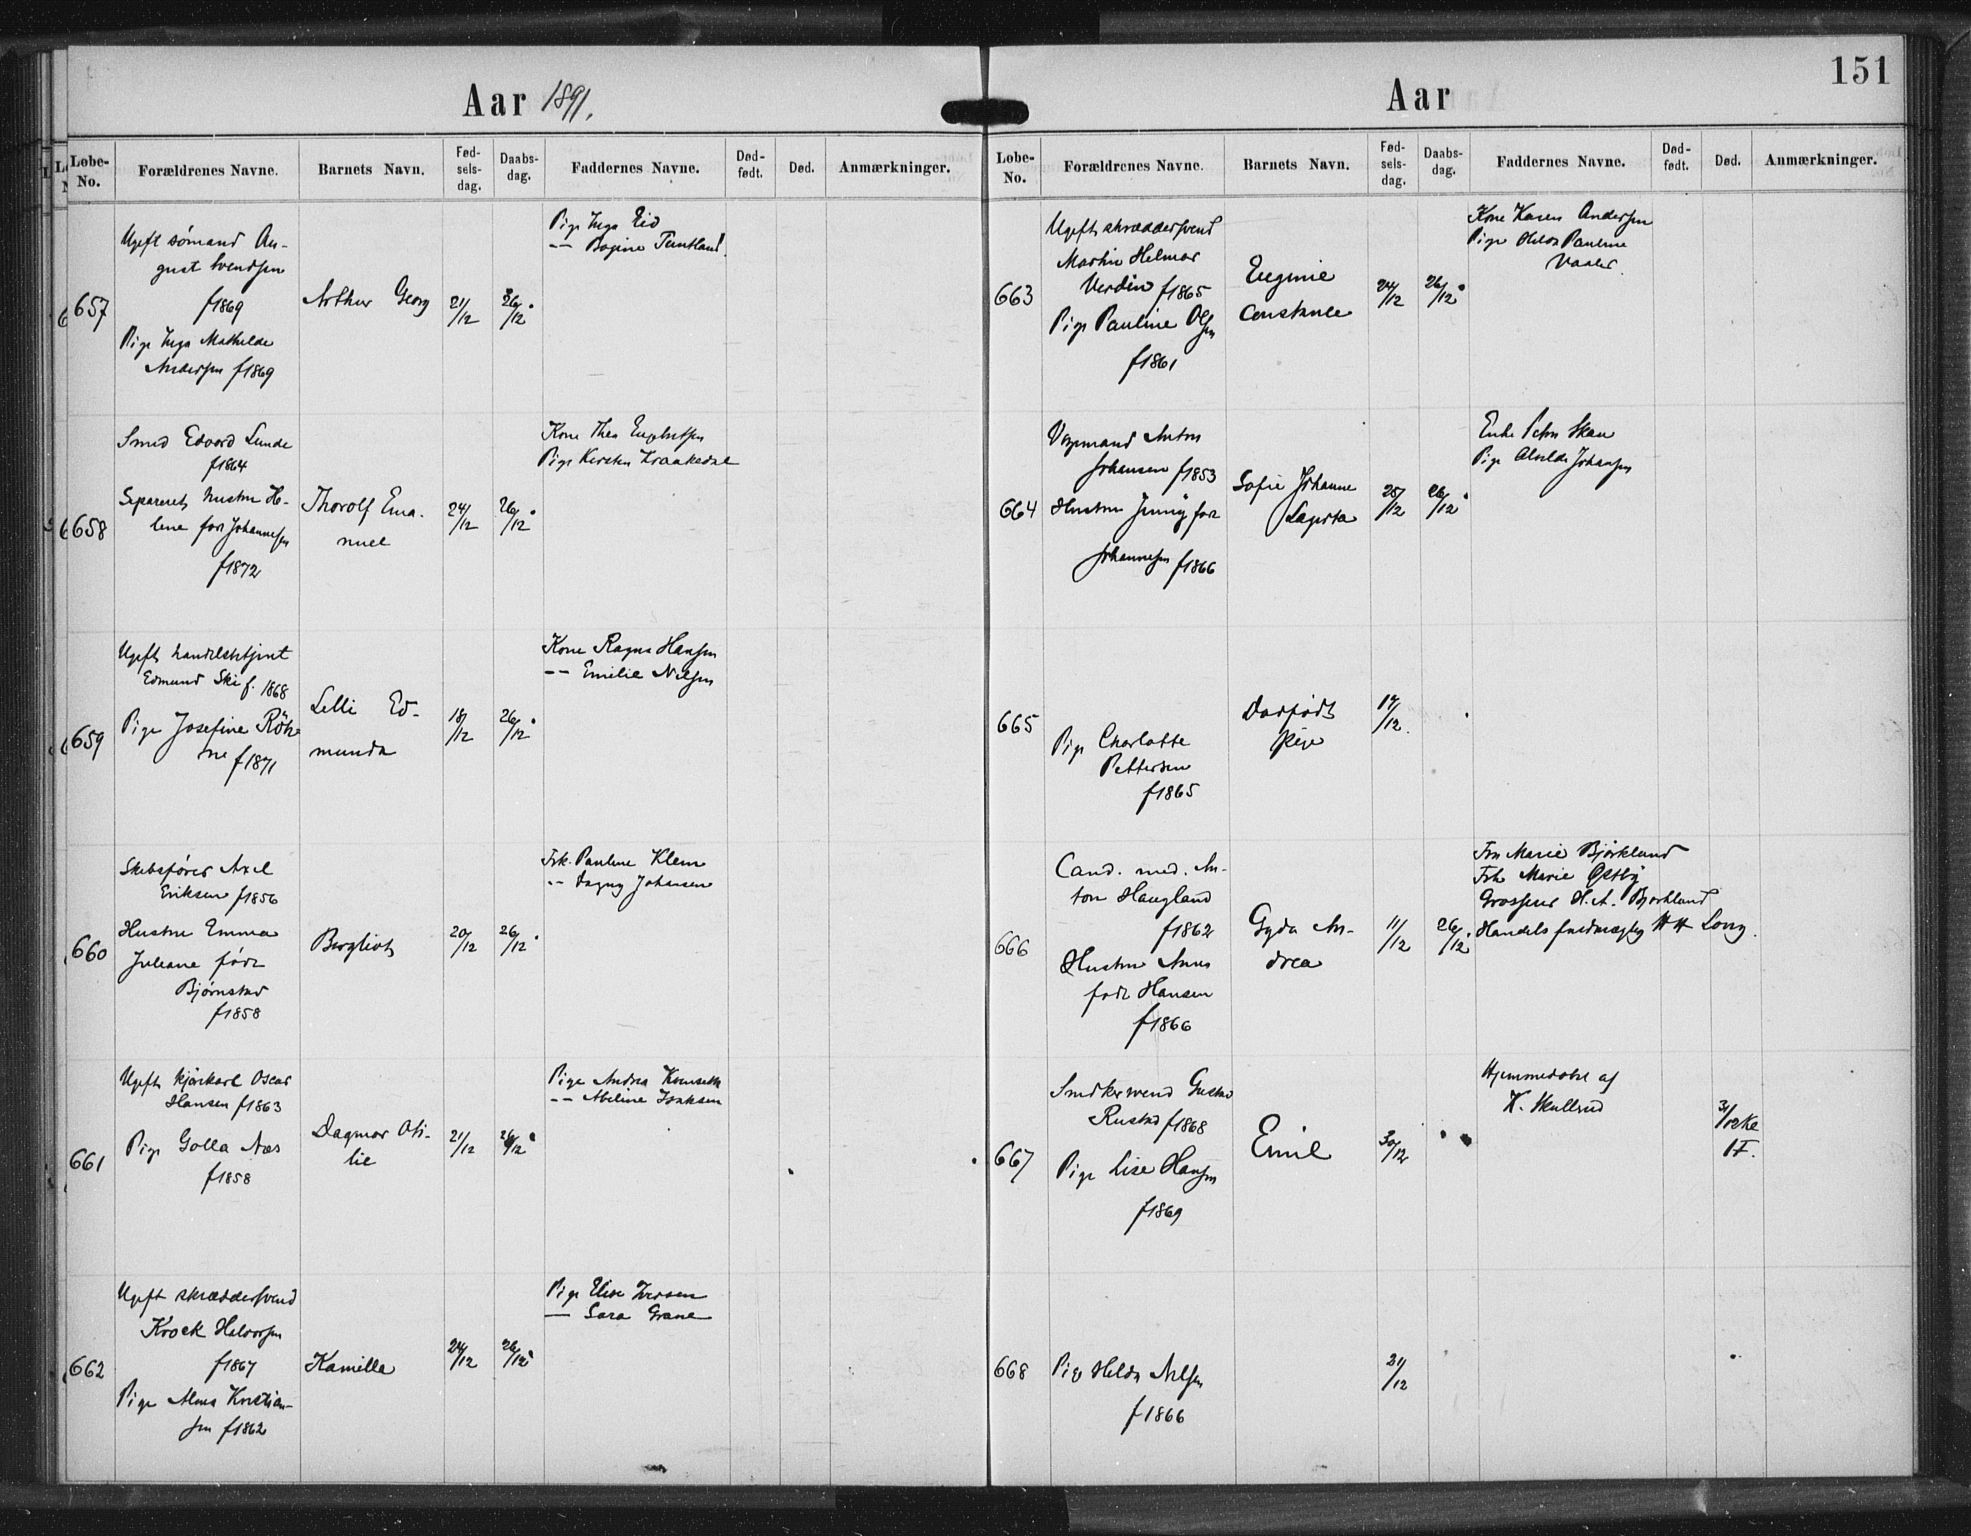 Aar 1891.
Løbe-No. Forældrenes Navne. Barnets Navn. Fød-sels-dag. Daabs-dag. Faddernes Navne. Død-født. Død. Anmærkninger.
657
Ugift sømand Au-
gust Svendsen
f1869
Pige Inga Mathilde
Andersen f1869
Arthur Georg
21/12
26/12
Pige Inga Eid
-- Bogine
658
Smed Edvard Lunde
f1864
Separeret hustru He-
lene før Johannesen
f1872
Thorolf Ema-
nuel
24/12
26/12
Kone Thea Engebretsen
Pige Kirsten Kraakedal
659
Ugift handelsbetjent
Edmund Ski f. 1868
Pige Josefine
f1871
Lilli Ed-
munda
18/12
26/12
Kone Ragna Hansen
-- Emilie Nilsen
660
Skibsfører Axel
Eriksen f1856
Hustru Emma
Juliane født
Bjørnstad
f1858
Bergliot
20/12
26/12
Frk. Pauline Klem
-- Dagny Johansen
661
Ugift kjørkarl Oscar
Hansen f1863
Pige Golla Næs
f1858
Dagmar Oti-
lie
21/12
26/12
Pige Andrea
-- Abeline Isaksen
662
Ugift skræddersvend
Halvorsen
f1867
Pige Alma Kristian-
sen f1862
Kamilla
24/12
26/12
Pige Elise Iversen
— Sara Grane
151
Aar
Løbe-No. Forældrenes Navne. Barnets Navn. Fød-sels-dag. Daabs-dag. Faddernes Navne. Død-født. Død. Anmærkninger.
663
Ugift skræddersvend
Martin Helmar
Verdin f1865
Pige Pauline Olsen
f1861
Eugenie
Constance
24/12
26/12
Kone Karen Andersen
Pige Hilda Pauline
Vaaler.
664
Vognmand Anton
Johansen f1853
Hustru Jenny før
Johannesen f1866
Sofie Johanne
25/12
26/12
Enke Petra Skau
Pige Alvilde Johansen
665
Pige Charlotte
Pettersen
f1865
Dødfødt
pige
17/12.
666
Cand. med. An-
ton Haugland
f1862
Hustru Anna
født Hansen
f1866
Gyda An-
drea
11/12
26/12
Fru Marie Bjørklund
Frk Marie Østby
Grosserer H. A. Bjørklund
Handelsfuldmægtig Long.
667
Smedsvend Gustav
Rustad f1868
Pige Lise Hansen
f1869
Emil
30/12
Hjemmedøbt af
K. Skullrud
31/12 Kl
1 F.
668
Pige Hilda Nilsen
f1866
31/12